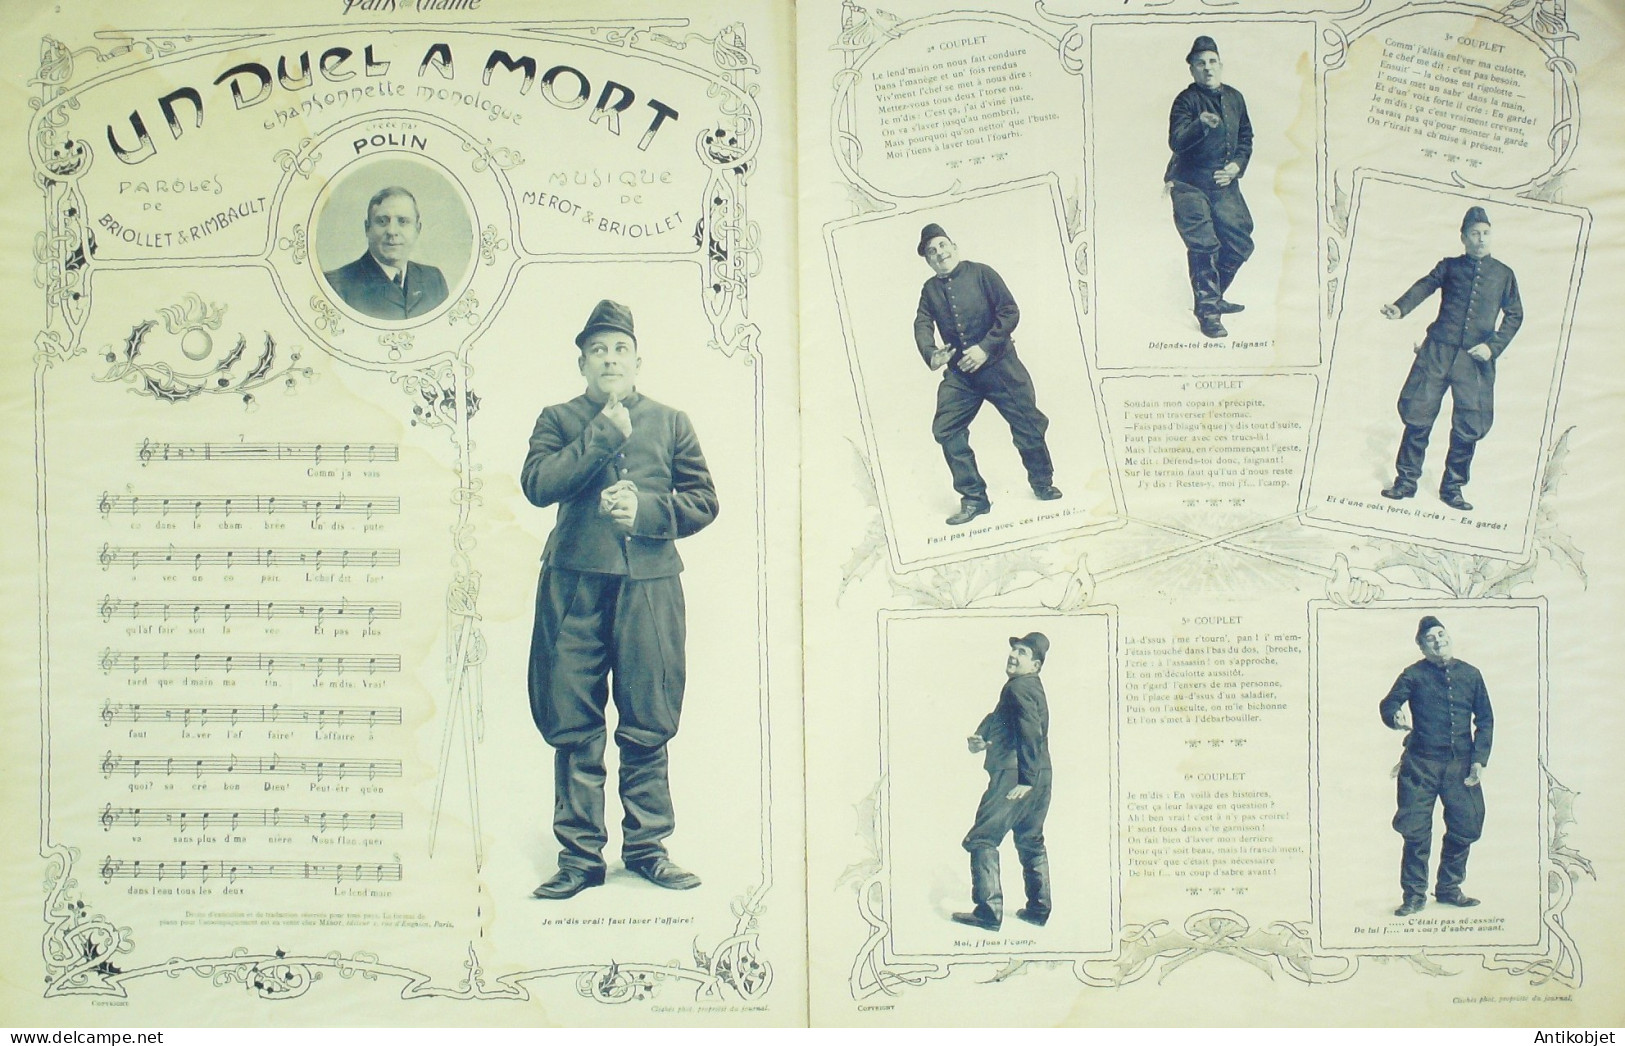 2
Paris qui Chante
UN DUEL A MORT
chansonnette monologue
créée par
POLIN
PAROLES
DE
BRIOLLET & RIMBAULT
MUSIQUE
DE
MEROT & BRIOLLET
7
Comm' j'a vais
eu dans la cham brée Un' dis - pute
a vec un co pain. L'chef dit faut
qu'l'af fair' soit la vée Et pas plus
tard que d'main ma tin. Je m'dis: Vrai!
faut la-ver l'af faire! L'affaire à
quoi? sa cré bon Dieu! Peut-êtr qu'on
va sans plus d'ma nière Nous flan_quer
dans l'eau tous les deux Le lend'main
Droits d'exécution et de traduction réservés pour tous pays. Le format de
piano pour l'accompagnement est en vente chez Méhert, éditeur 2, rue d'Enghien, Paris.
Je m'dis vrai! faut laver l'affaire!
COPYRIGHT
Clichés phot. propriété du journal.
2e COUPLET
Le lend'main on nous fait conduire
Dans l'manège et un' fois rendus
Viv'ment l'chef se met à nous dire :
Mettez-vous tous deux l'torse nu.
Je m'dis : C'est ça, j'ai d'viné juste,
On va s'laver jusqu'au nombril,
Mais pourquoi qu'on nettoi' que l'buste,
Moi j'tiens à laver tout l'fourbi.
Défends-toi donc, faignant !
3e COUPLET
Comm' j'allais enl'ver ma culotte,
Le chef me dit : c'est pas besoin.
Ensuit' — la chose est rigolotte —
I' nous met un sabr' dans la main,
Et d'un' voix forte il crie : En garde!
Je m'dis : ça c'est vraiment crevant,
J'savais pas qu'pour monter la garde
On r'tirait sa ch'mise à présent.
Faut pas jouer avec ces trucs là!...
4e COUPLET
Soudain mon copain s'précipite,
I' veut m'traverser l'estomac.
—Fais pas d'blagu's que j'y dis tout d'suite,
Faut pas jouer avec ces trucs-là!
Mais l'chameau, en r'commençant l'geste,
Me dit : Défends-toi donc, faignant!
Sur le terrain faut qu'l'un d'nous reste
J'y dis : Restes-y, moi j'f... l'camp.
Et d'une voix forte, il crie ! — En garde !
5e COUPLET
Là-d'ssus j'me r'tourn', pan! i' m'em-
J'étais touché dans l'bas du dos, [broche,
J'crie : à l'assassin! on s'approche,
Et on m'déculotte aussitôt.
On r'gard' l'envers de ma personne,
On l'place au-d'ssus d'un saladier,
Puis on l'ausculte, on m'le bichonne
Et l'on s'met à l'débarbouiller.
6e COUPLET
Je m'dis : En voilà des histoires,
C'est ça leur lavage en question ?
Ah! ben vrai! c'est à n'y pas croire!
I' sont fous dans c'te garnison!
On fait bien d'laver mon derrière
Pour qu'i' soit beau, mais là franchement,
J'trouv' que c'était pas nécessaire
De lui f... un coup d'sabre avant!
Moi, j'fous l'camp.
..... C'était pas nécessaire
De lui f.... un coup d'sabre avant.
COPYRIGHT
Clichés phot. propriété du journal.
Antikobjet
delcampe.net